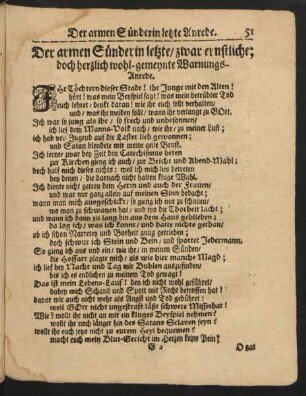 Der armen Sünderin letzte Anrede. 51
Der armen Sünderin letzte/ zwar ernstliche;
doch hertzlich wohl-gemeynte Warnungs-
Anrede.
Ihr Töchtern dieser Stadt! ihr Junge mit den Alten!
hört! was mein Beyspiel sag! was mein betrübter Tod
Euch lehret/ denckt daran! wie ihr euch sollt verhalten/
und/ was ihr meiden sollt/ wann ihr verlangt zu GOtt.
Ich war so jung als ihr/ so frech und unbesonnen/
ich lief dem Manns-Volck nach/ wie ihr/ zu meiner Lust;
ich hab von Jugend auf die Laster lieb gewonnen;
und Satan blendete mir meine geile Brust.
Ich lernte zwar bey Zeit den Catechismus beten
zur Kirchen gieng ich auch/ zur Beicht und Abend-Mahl;
doch half mich dieses nichts; weil ich mich ließ betreten
bey denen/ die darnach nicht halten kluge Wahl.
Ich diente nicht getreu dem Herrn und auch der Frauen/
und war nur gantz allein auf meinen Sinn bedacht;
wann man mich ausgeschickt/ so gieng ich nur zu schauen/
wo man zu schwatzen hat/ und wo die Thorheit lacht;
und wann ich dann zu lang bin aus dem Haus geblieben;
da log ich/ was ich konnte/ und hatte nichts gethan/
ob ich schon Narretey und Boßheit gnug getrieben;
doch schwur ich Stein und Bein/ und spottet Jedermann.
So gieng ich aus und ein/ wie ihr/ in meinen Sünden/
die Hoffart plagte mich/ als wie hier manche Magd;
ich lief bey Nacht und Tag mit Buhlen anzufinden/
bis ich es endlichen zu meinem Tod gewagt!
Das ist mein Lebens-Lauf! den ich nicht wohl geführet/
dabey mich Schand und Spott mit Recht betroffen hat!
davor mir auch nicht mehr als Angst und Tod gebühret:
weil GOtt nicht ungestraft läßt schwere Missethat!
Wie? wollt ihr nicht an mir ein kluges Beyspiel nehmen?
wollt ihr noch länger hin des Satans Sclaven seyn?
wollt ihr euch jetzt nicht zu eurem Heyl bequemen?
macht euch mein Blut-Gericht im Hertzen keine Pein?
G 2 O Got